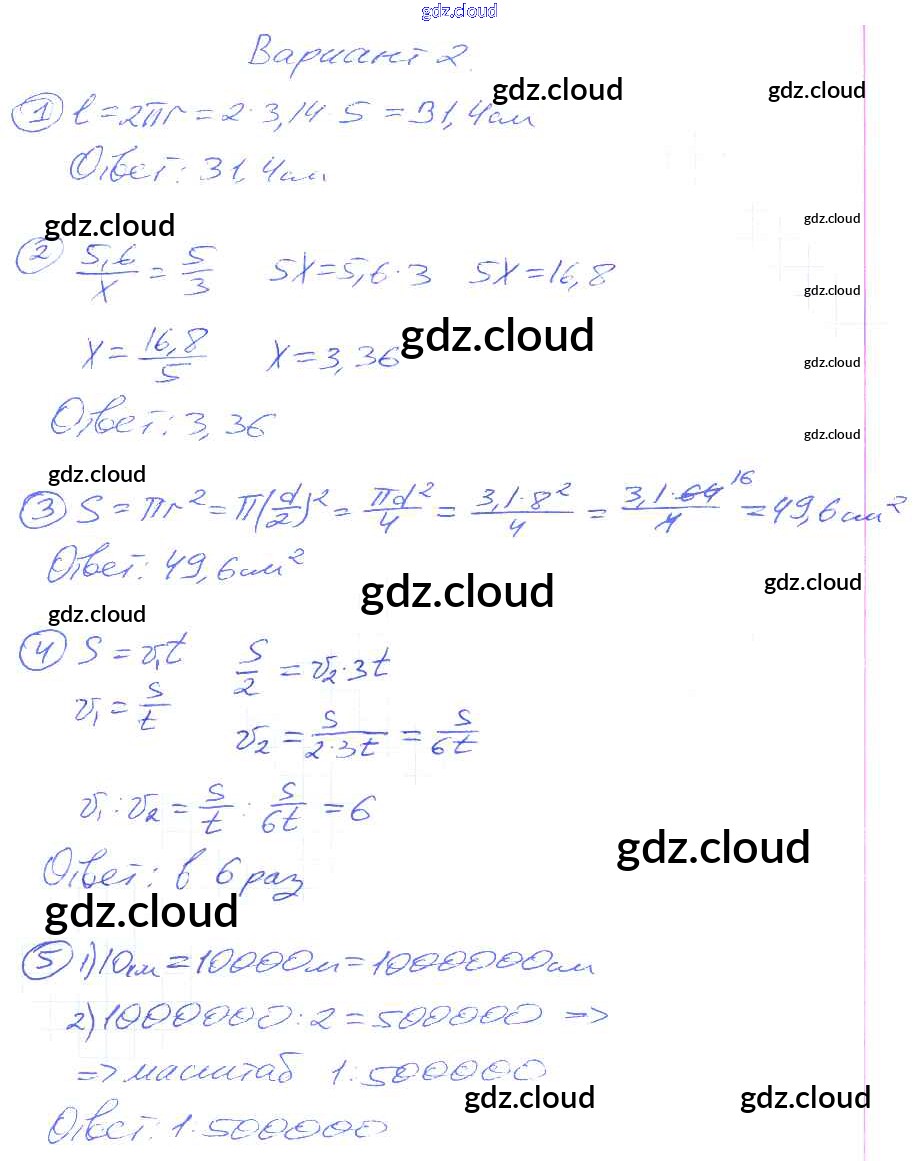 gdz.cloud
Вариант 2.
gdz.cloud gdz.cloud
① l = 2πr = 2 · 3,14 · 5 = 31,4 см
Ответ: 31,4 см
gdz.cloud gdz.cloud
② 5,6/x = 5/3 5x = 5,6 · 3 5x = 16,8
gdz.cloud
x = 16,8/5 x = 3,36 gdz.cloud
gdz.cloud
Ответ: 3,36
gdz.cloud
gdz.cloud
③ S = πr² = π(d/2)² = πd²/4 = 3,1·8²/4 = 3,1·64/4 16 = 49,6 см²
Ответ: 49,6 см²
gdz.cloud gdz.cloud
gdz.cloud
④ S = v₁t S/2 = v₂·3t
v₁ = S/t v₂ = S/2·3t = S/6t
v₁ : v₂ = S/t : S/6t = 6
gdz.cloud
Ответ: в 6 раз
gdz.cloud
⑤ 1) 10км = 10000м = 1000000см
2) 1000000 : 2 = 500000 =>
=> масштаб 1:500000
gdz.cloud gdz.cloud
Ответ: 1:500000